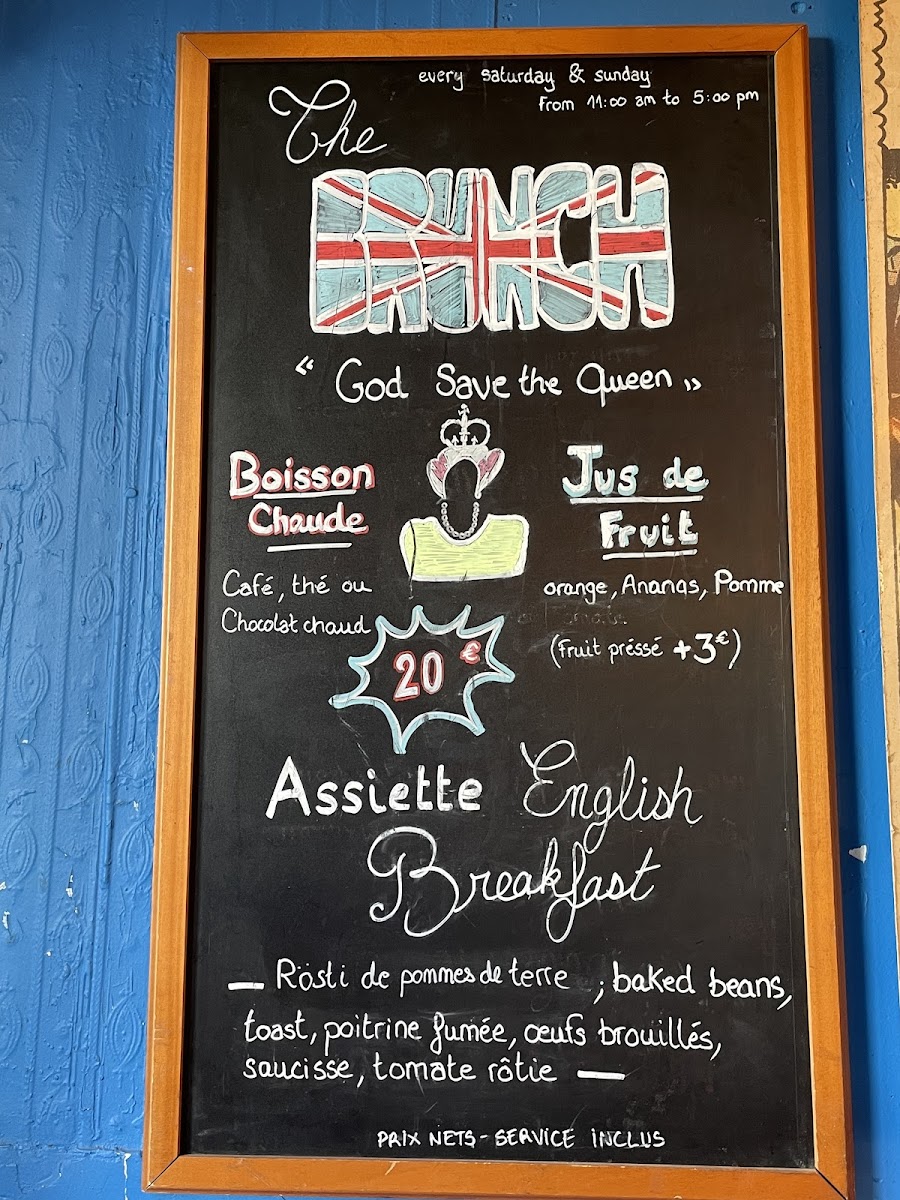 every saturday & sunday
from 11:00 am to 5:00 pm
The
BRUNCH
"God Save the Queen"
Boisson
Chaude
Café, thé ou
Chocolat chaud
Jus de
Fruit
orange, Ananas, Pomme
(Fruit préssé +3€)
20 €
Assiette English
Breakfast
— Rösti de pommes de terre ; baked beans,
toast, poitrine fumée, œufs brouillés,
saucisse, tomate rôtie —
PRIX NETS - SERVICE INCLUS